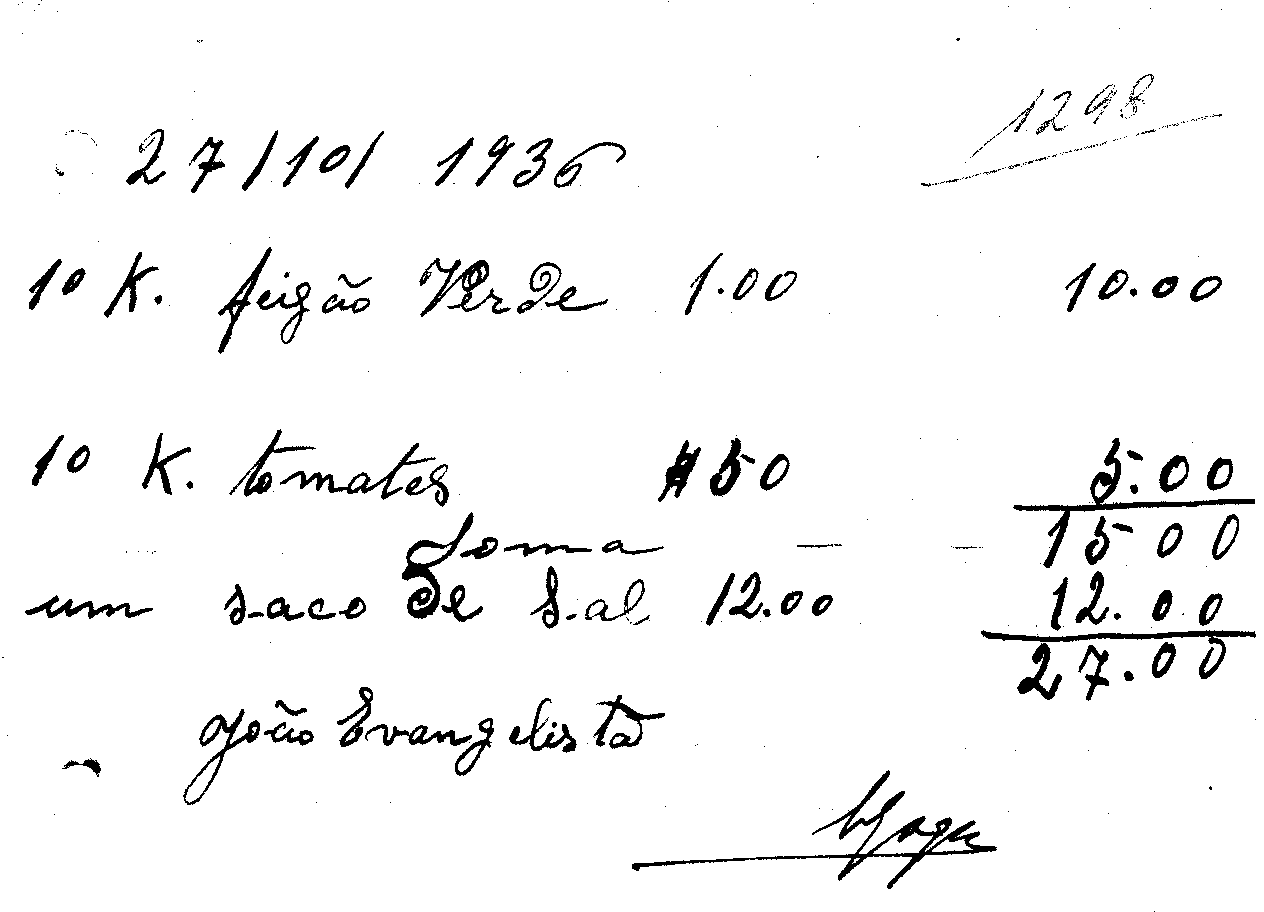 1298
27/10/ 1936
10 K. feigão Verde 1.00 10.00
10 K. tomates $50 5.00
Soma — — 1500
um saco de Sal 12.00 12.00
27.00
João Evangelista